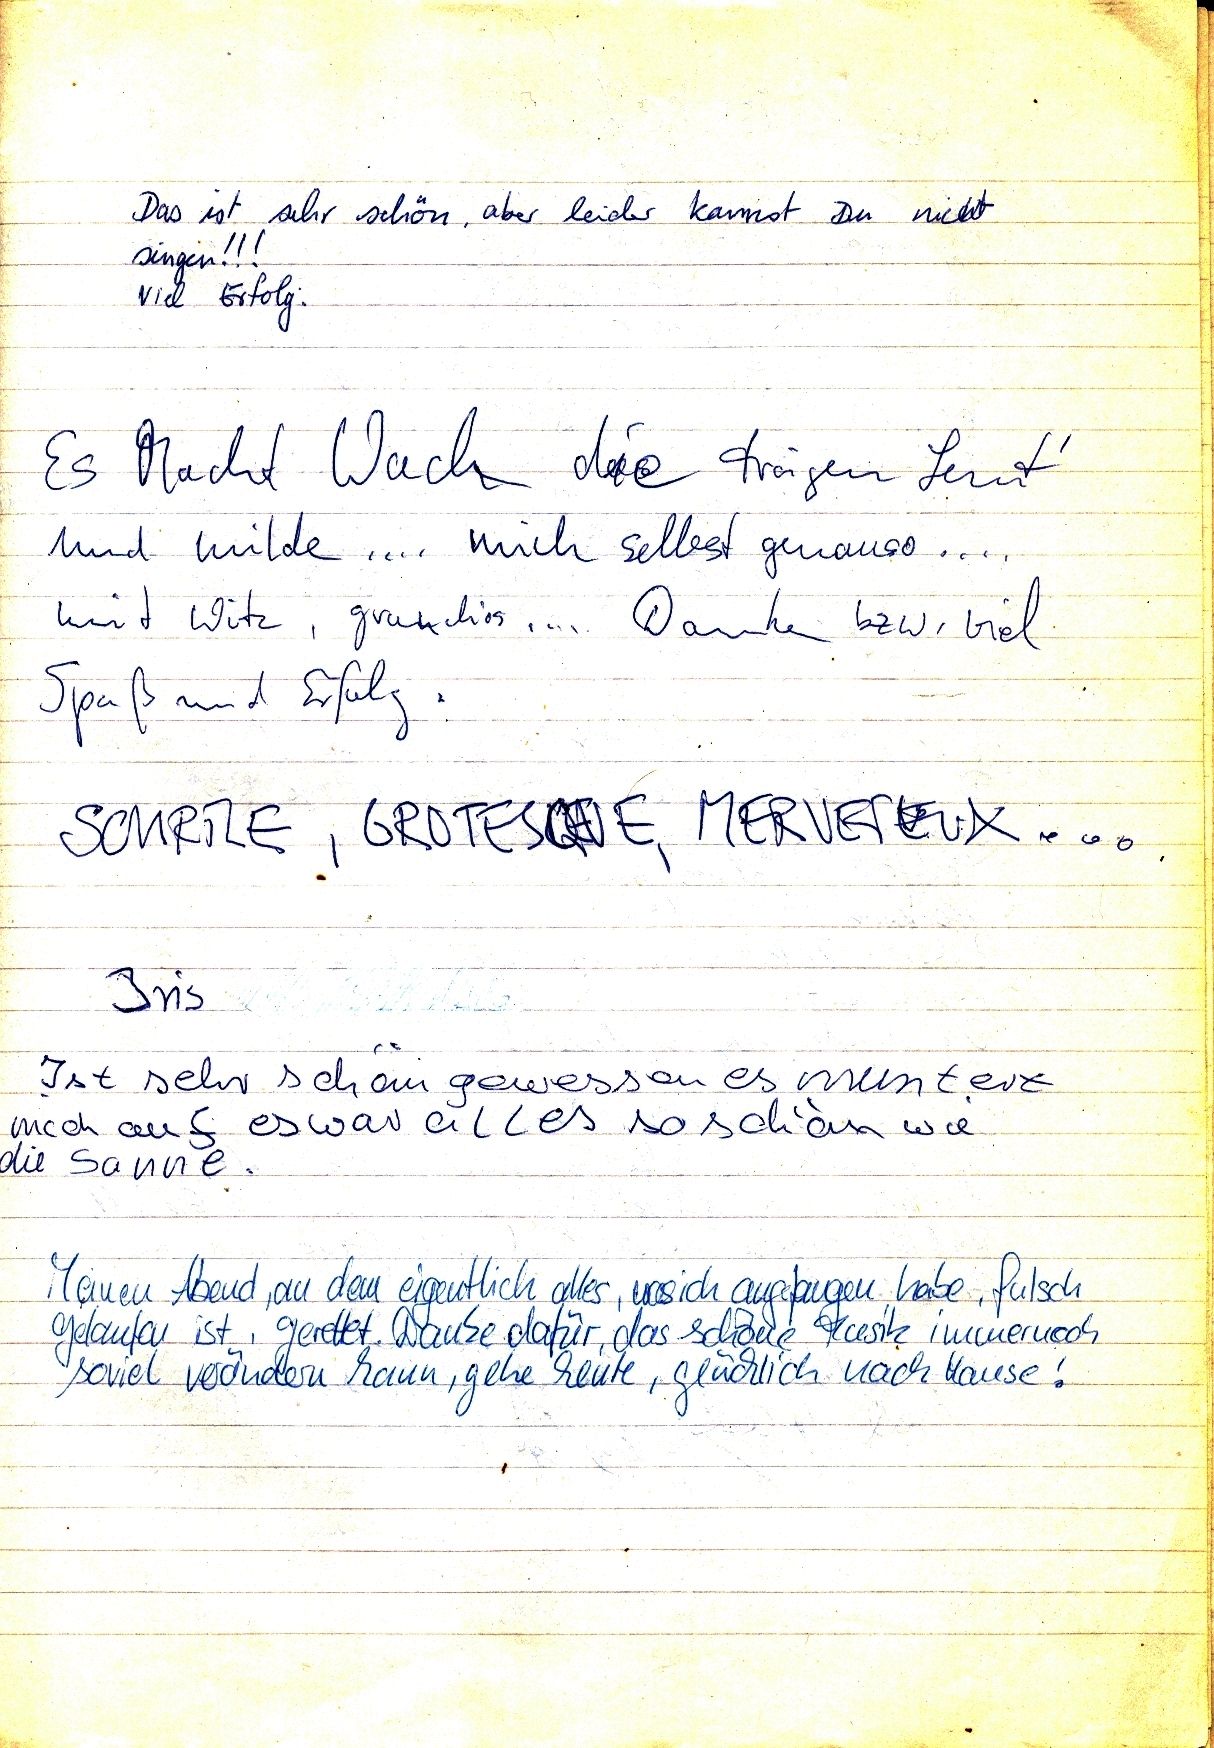 Das ist sehr schön, aber leider kannst Du nicht
singen!!!
Viel Erfolg.
Es Macht Wach die trägen Leut'
und milde .... mich selbst genauso ....
mit Witz, grandios .... Danke bzw. viel
Spaß und Erfolg.
SCHRILLE, GROTESQUE, MERVEILLEUX ....
Iris
Ist sehr schön gewessen es muntert
mich auf es war alles so schön wie
die Sonne.
Meinen Abend, an dem eigentlich alles, was ich angefangen habe, falsch
gelaufen ist, gerettet. Danke dafür, das schöne Musik immernoch
soviel verändern kann, gehe heute, glücklich nach Hause!